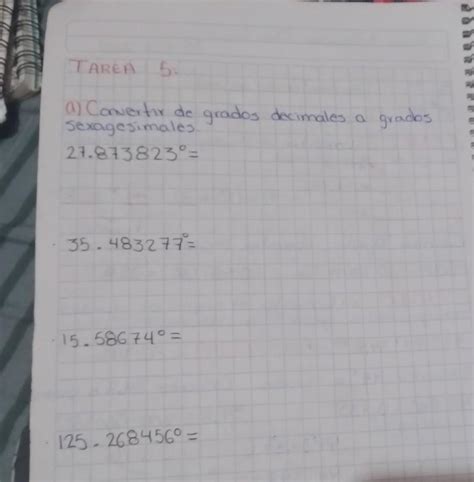 TAREA 5.
a) Convertir de grados decimales a grados
sexagesimales.
27.873823°=
35.483277°=
15.58674°=
125.268456°=